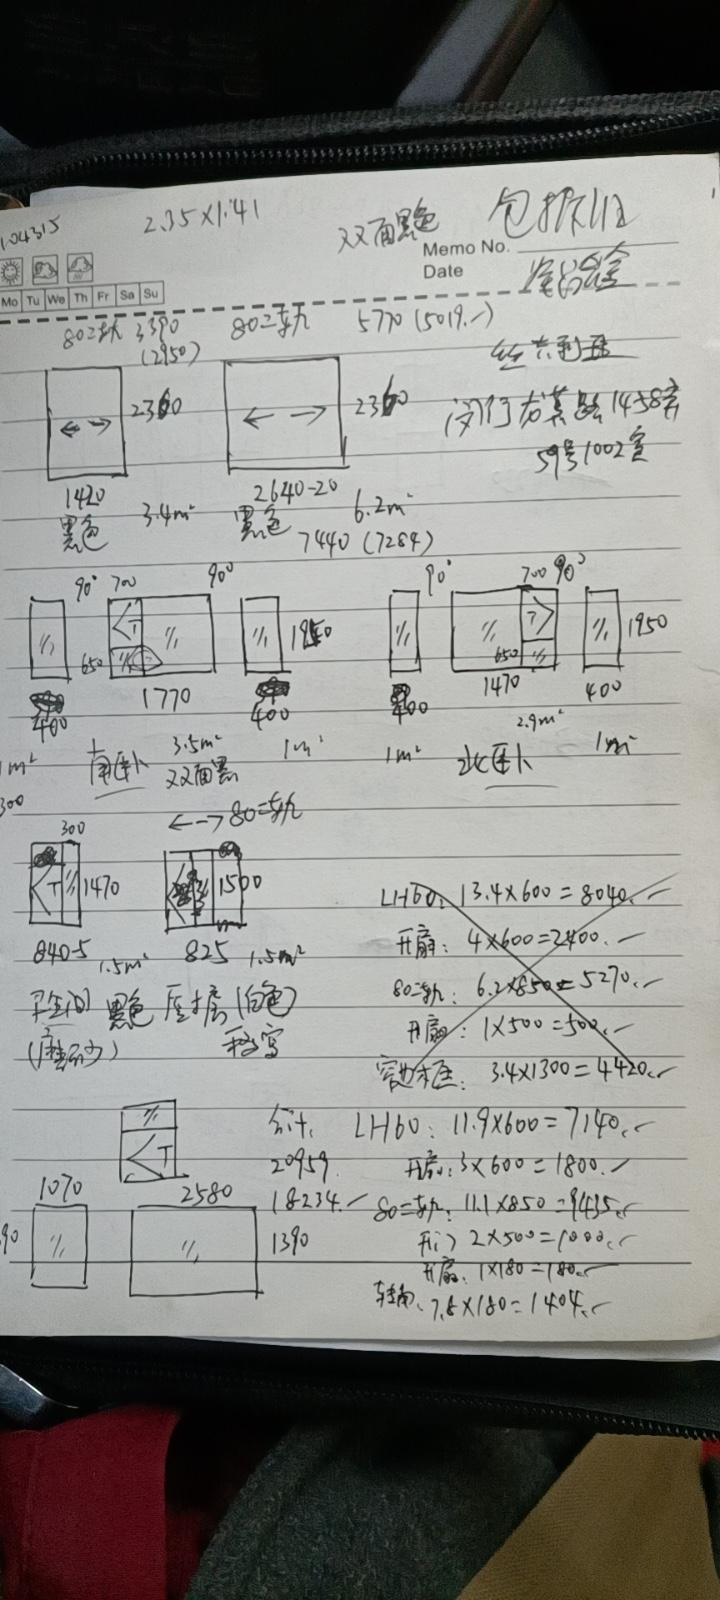 2.35×1.41
双面黑色
Memo No.
Date
Mo Tu We Th Fr Sa Su
80二轨 3390
(2950)
80二轨 5770 (5019.-)
2360
2360
闵行 1458弄
59号1002室
1420
2640-20
黑色 3.4m² 黑色 6.2m²
7440 (7284)
90° 700 90° 90° 700 90°
1950
650
650
1950
400 1770 400 400 1470 400
1m² 南卧 3.5m² 1m² 1m² 北卧 2.9m² 1m²
双面黑
300
←→ 80二轨
1470
1500
840-5 1.5m² 825 1.5m²
卫生间 黑色 (白色)
LH60: 13.4×600=8040.-
开扇: 4×600=2400.-
80二轨: 6.2×850=5270.-
开扇: 1×500=500.-
3.4×1300=4420.-
合计.
20959.
18234.-
LH60: 11.9×600=7140.-
开扇: 3×600=1800.-
80二轨: 11.1×850=9435.-
开门 2×500=1000.-
开扇. 1×180=180.-
7.8×180=1404.-
1070
2580
1390